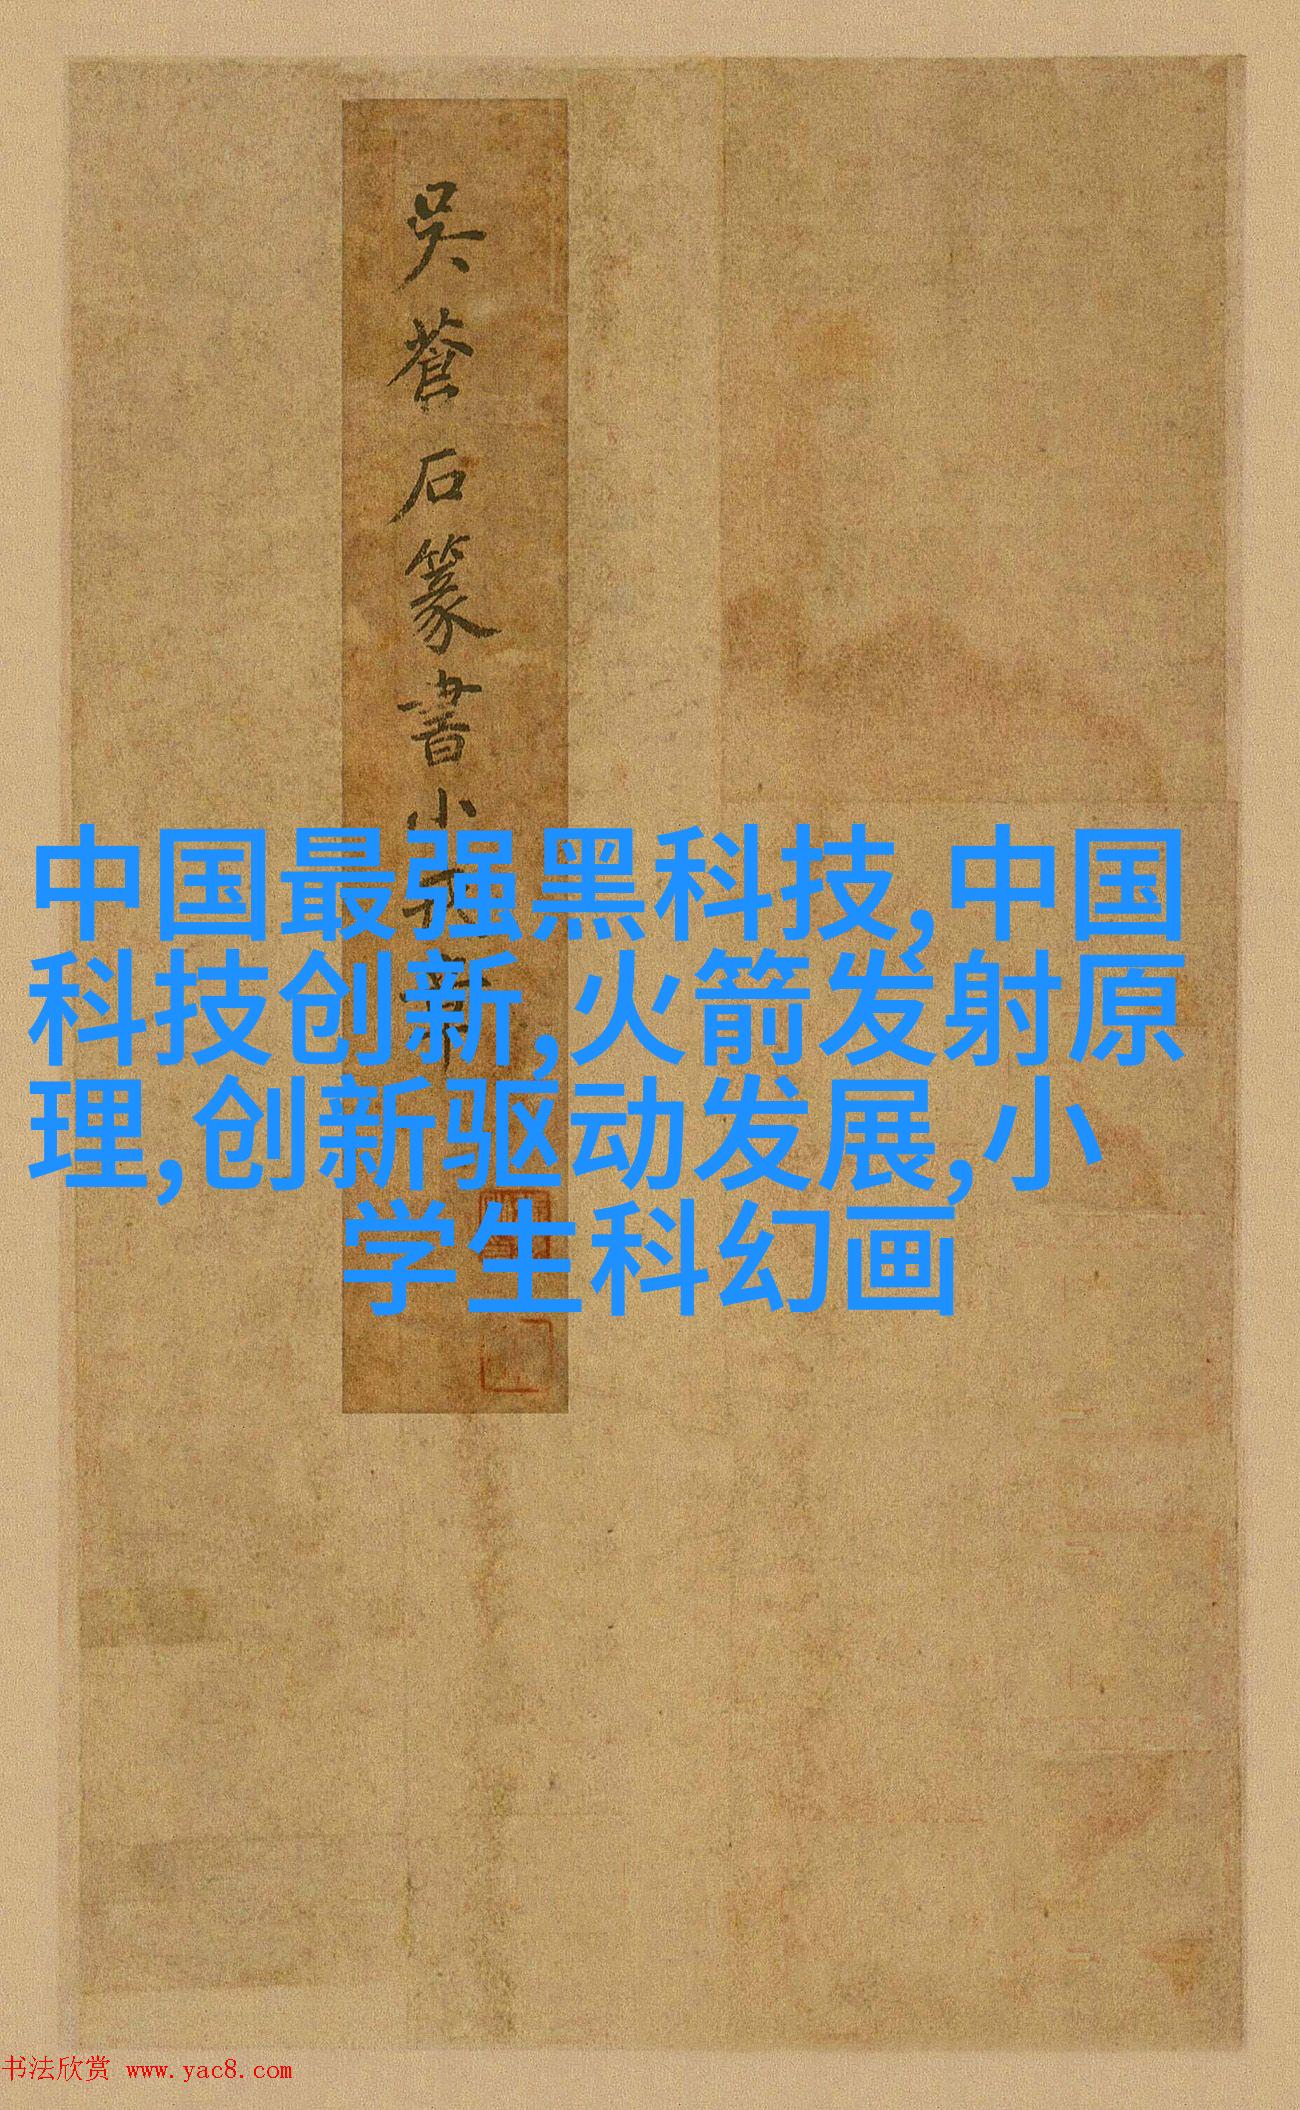 吳蒼石篆書小
中国最强黑科技,中国
科技创新,火箭发射原
理,创新驱动发展,小
学生科幻画
书法欣赏 www.yac8.com